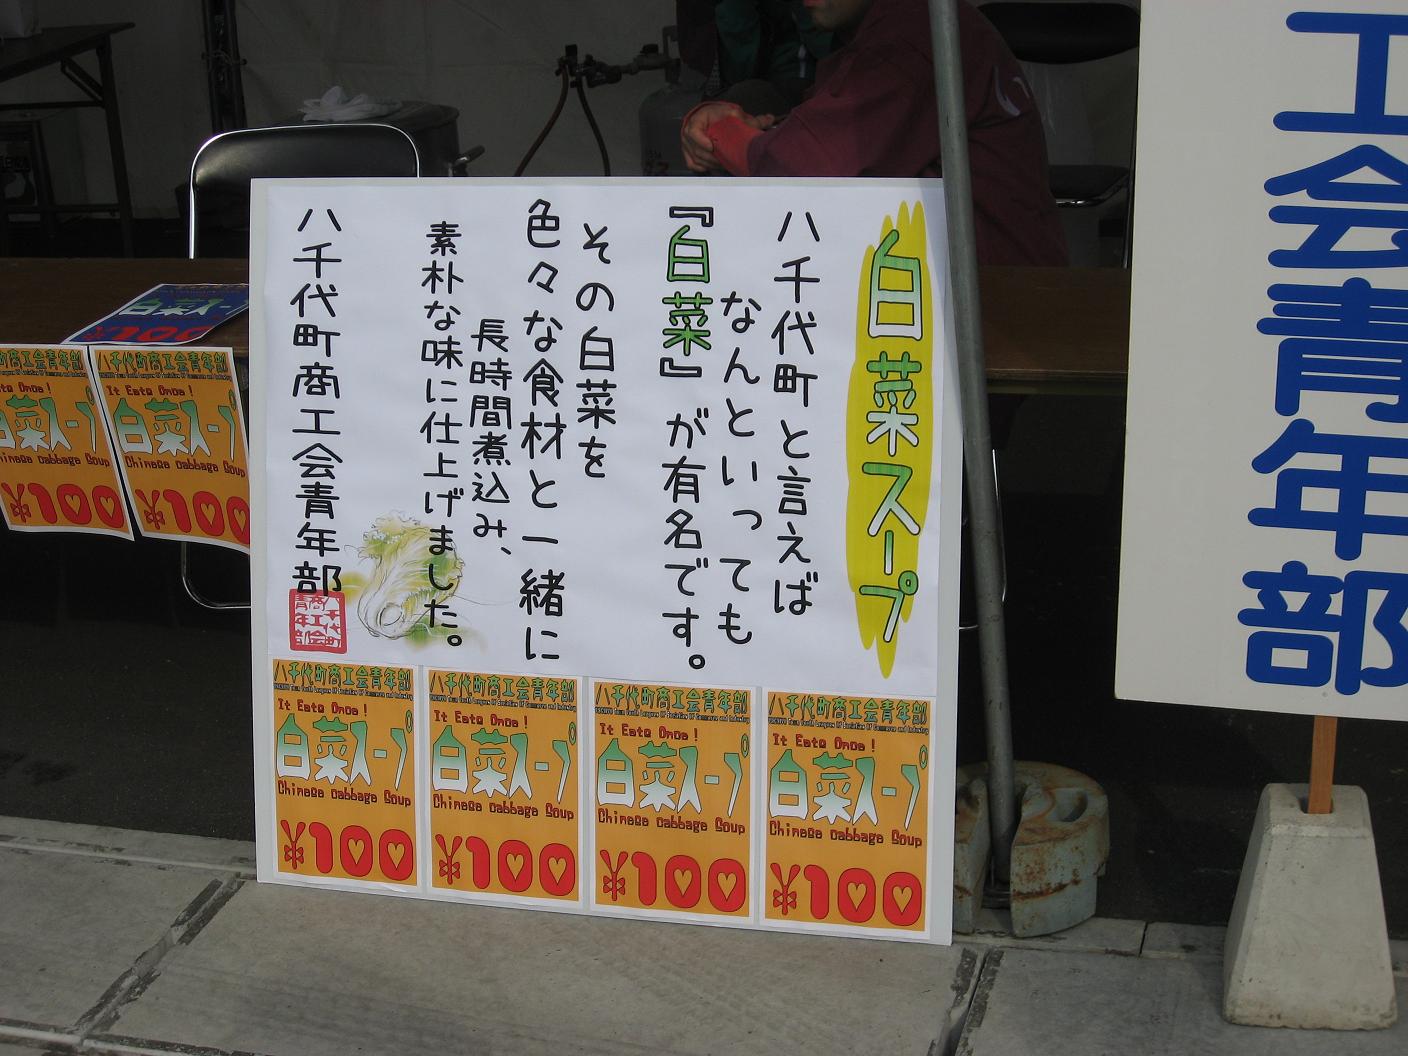 白菜スープ
八千代町と言えば
なんといっても
『白菜』が有名です。
その白菜を
色々な食材と一緒に
長時間煮込み、
素朴な味に仕上げました。
八千代町商工会青年部
八千代町商工会青年部
It Eats Once!
白菜スープ
Chinese Cabbage Soup
¥100
八千代町商工会青年部
It Eats Once!
白菜スープ
Chinese Cabbage Soup
¥100
八千代町商工会青年部
It Eats Once!
白菜スープ
Chinese Cabbage Soup
¥100
八千代町商工会青年部
It Eats Once!
白菜スープ
Chinese Cabbage Soup
¥100
八千代町商工会青年部
It Eats Once!
白菜スープ
Chinese Cabbage Soup
¥100
千代町商工会青年部
Eats Once!
白菜スープ
hinese Cabbage Soup
¥100
白菜スープ
工会青年部